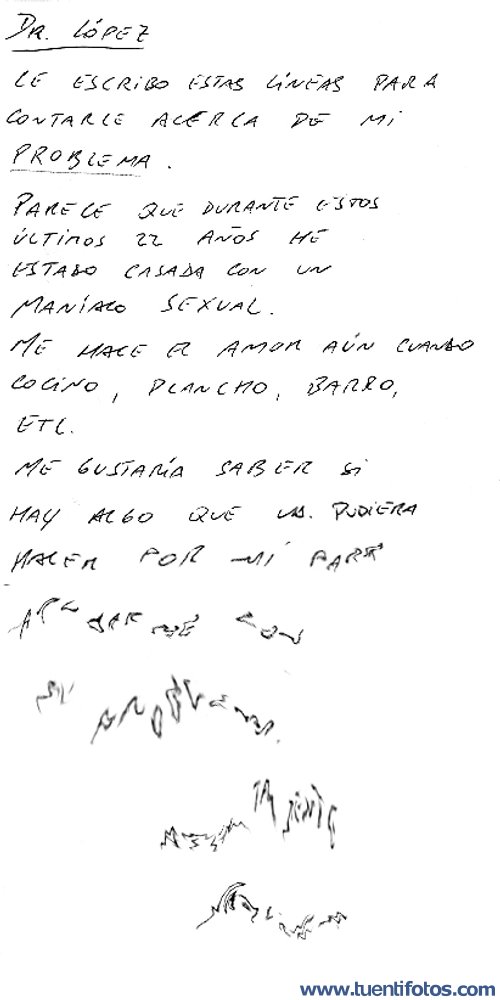 DR. LÓPEZ
LE ESCRIBO ESTAS LÍNEAS PARA
CONTARLE ACERCA DE MI
PROBLEMA.
PARECE QUE DURANTE ESTOS
ÚLTIMOS 22 AÑOS HE
ESTADO CASADA CON UN
MANÍACO SEXUAL.
ME HACE EL AMOR AÚN CUANDO
COCINO, PLANCHO, BARRO,
ETC.
ME GUSTARÍA SABER SI
HAY ALGO QUE UD. PUDIERA
HACER POR MI PARA
CON
www.tuentifotos.com